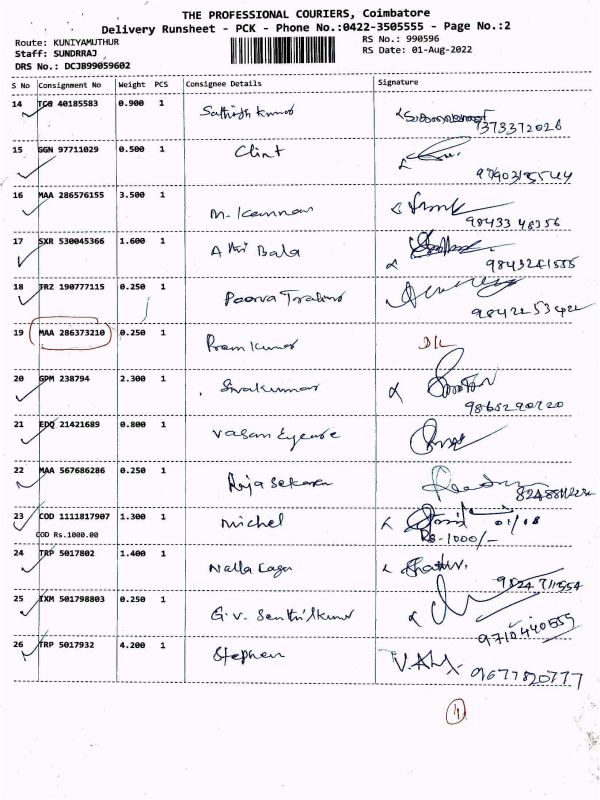 THE PROFESSIONAL COURIERS, Coimbatore
Delivery Runsheet - PCK - Phone No.:0422-3505555 - Page No.:2
Route: KUNIYAMUTHUR RS No.: 990596
Staff: SUNDRRAJ RS Date: 01-Aug-2022
DRS No.: DCJB99059602
S No Consignment No Weight PCS Consignee Details Signature
14 TCG 40185583 0.900 1 Sathish Kumar
9373372026
15 GGN 97711029 0.500 1 Clint
16 MAA 286576155 3.500 1 M. Kannan
98433 48356
17 SXR 530045366 1.600 1 Athi Bala
9843241555
18 TRZ 190777115 0.250 1 Poorva Trading
19 MAA 286373210 0.250 1 Prem Kumar D/L
20 GPM 238794 2.300 1 Sivakumar
9865290220
21 EDQ 21421689 0.800 1 Vasan Eyecare
22 MAA 567686286 0.250 1 Raja Sekaran
23 COD 1111817907 1.300 1 Michel 01/08
COD Rs.1000.00 Rs-1000/-
24 TRP 5017802 1.400 1
25 IXM 501798803 0.250 1 G.V. Senthilkumar
9710440559
26 TRP 5017932 4.200 1 Stephen
9677820777